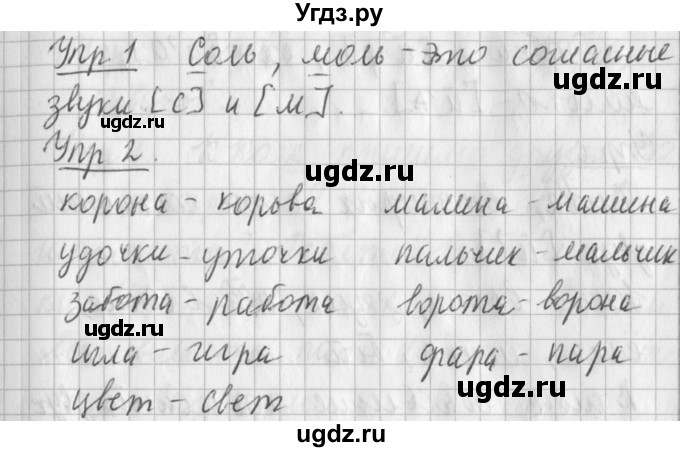 Угдз.ру
Упр 1 Соль, моль - это согласные
ugdz.ru
звуки [с] и [м].
ugdz.ru ugdz.ru
Упр 2.
корона - корова малина - машина
ugdz.ru ugdz.ru
удочки - уточки пальчик - мальчик
забота - работа ворота - ворона
ugdz.ru ugdz.ru
игла - игра фара - пара
ugdz.ru
цвет - свет
ugdz.ru